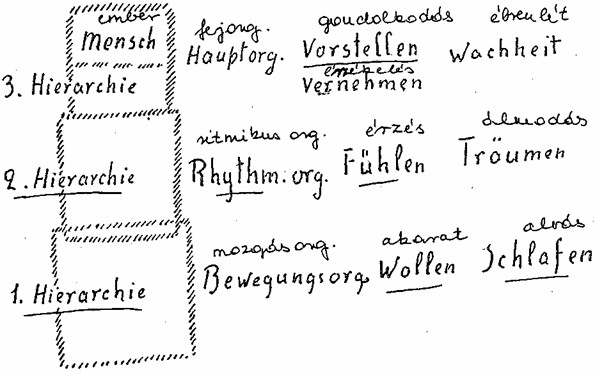 ember fejorg. gondolkodás ébrenlét
Mensch Hauptorg. Vorstellen Wachheit
érzékelés
3. Hierarchie Vernehmen
ritmikus org. érzés álmodás
2. Hierarchie Rhythm. org. Fühlen Träumen
mozgás org. akarat alvás
1. Hierarchie Bewegungsorg. Wollen Schlafen